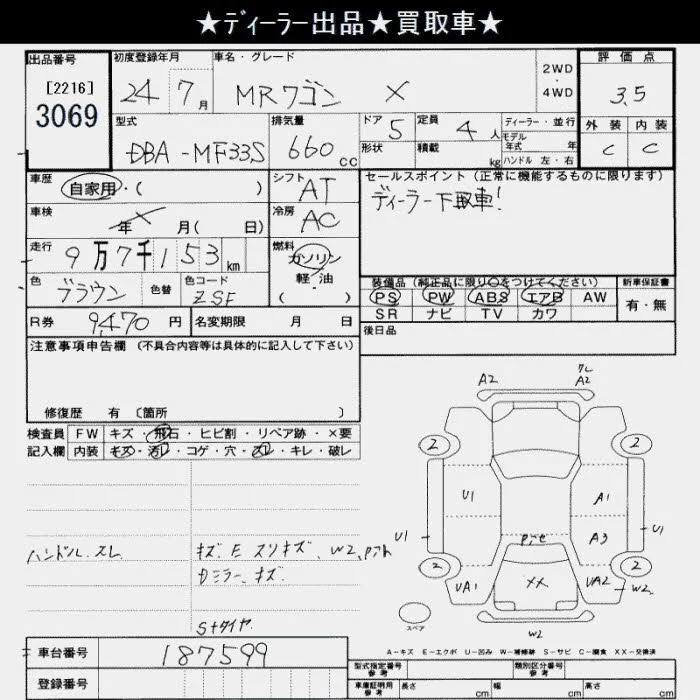 ★ディーラー出品★買取車★
出品番号
[2216]
3069
初度登録年月
24 7月
車名・グレード
MRワゴン X
2WD
・
4WD
評価点
3.5
外装 内装
C C
型式
DBA-MF33S
排気量
660cc
ドア 5
形状
定員 4人
積載 kg
ディーラー・並行
モデル
年式 年
ハンドル 左・右
車歴
自家用・( )
シフト
AT
セールスポイント(正常に機能するものに限ります)
ディーラー下取車!
車検
年 月( 日)
冷房
AC
走行
9万7千153km
燃料
ガソリン
軽・油
( )
色
ブラウン
色替
色コード
ZSF
装備品(純正品に限り○をつけてください)
PS PW ABS エアB AW
SR ナビ TV カワ
新車保証書
有・無
R券 9,470円
名変期限 月 日
後日品
注意事項申告欄(不具合内容等は具体的に記入して下さい)
修復歴 有 〔箇所 〕
検査員
記入欄
FW キズ・飛石・ヒビ割・リペア跡・×要
内装 キズ・汚レ・コゲ・穴・スレ・キレ・破レ
ハンドル.スレ
キズ.E スリキズ、W2.
ミラー.キズ.
Sタイヤ.
A2
A2
2
2
U1
A1
U1
A3
U1
2
2
XX
UA1
UA2
W2
スペア
W2
A-キズ E-エクボ U-凹み W-補修跡 S-サビ C-腐食 XX-交換済
車台番号
187599
登録番号
型式指定番号
参考
類別区分番号
参考
車庫証明用
参考
長さ cm
幅 cm
高さ cm